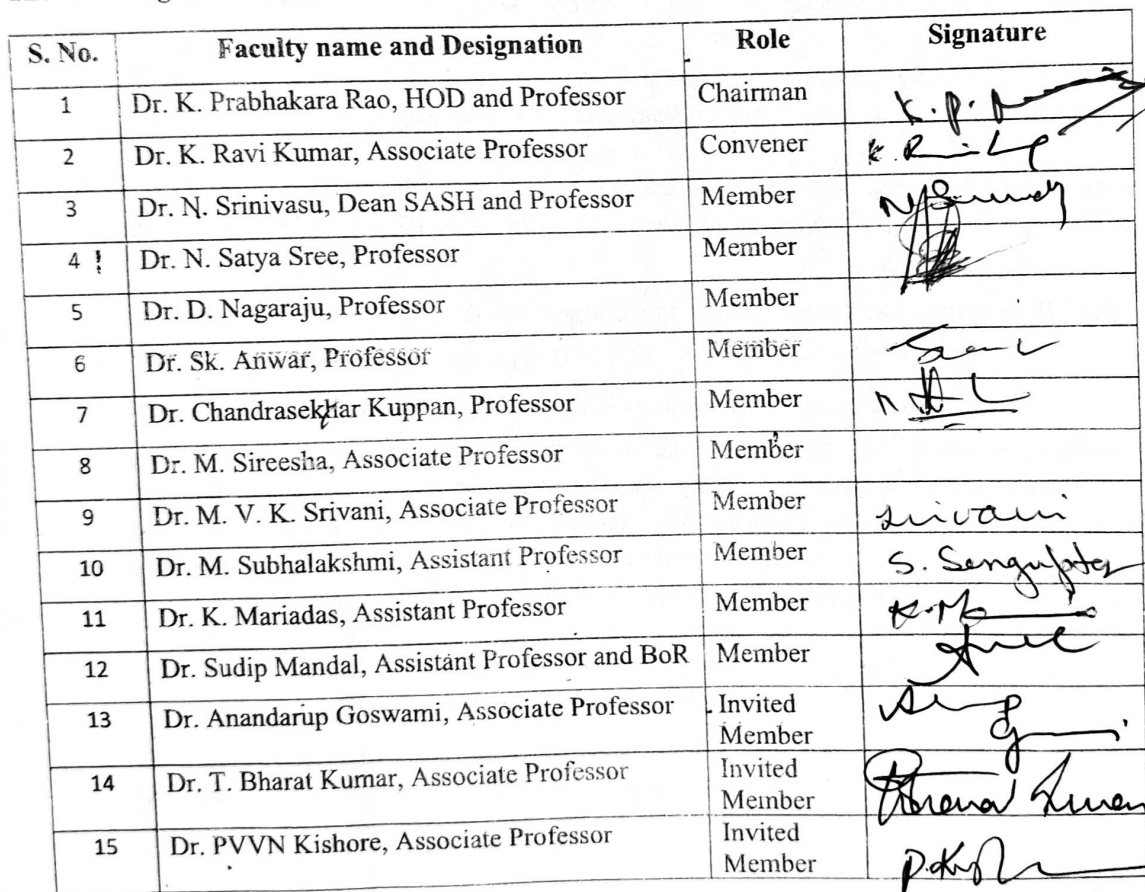 S. No. Faculty name and Designation Role Signature
1 Dr. K. Prabhakara Rao, HOD and Professor Chairman K. P.
2 Dr. K. Ravi Kumar, Associate Professor Convener K.
3 Dr. N. Srinivasu, Dean SASH and Professor Member
4 Dr. N. Satya Sree, Professor Member
5 Dr. D. Nagaraju, Professor Member
6 Dr. Sk. Anwar, Professor Member
7 Dr. Chandrasekhar Kuppan, Professor Member
8 Dr. M. Sireesha, Associate Professor Member
9 Dr. M. V. K. Srivani, Associate Professor Member srivani
10 Dr. M. Subhalakshmi, Assistant Professor Member S. Sengupta
11 Dr. K. Mariadas, Assistant Professor Member
12 Dr. Sudip Mandal, Assistant Professor and BoR Member
13 Dr. Anandarup Goswami, Associate Professor Invited
Member
14 Dr. T. Bharat Kumar, Associate Professor Invited
Member
15 Dr. PVVN Kishore, Associate Professor Invited
Member